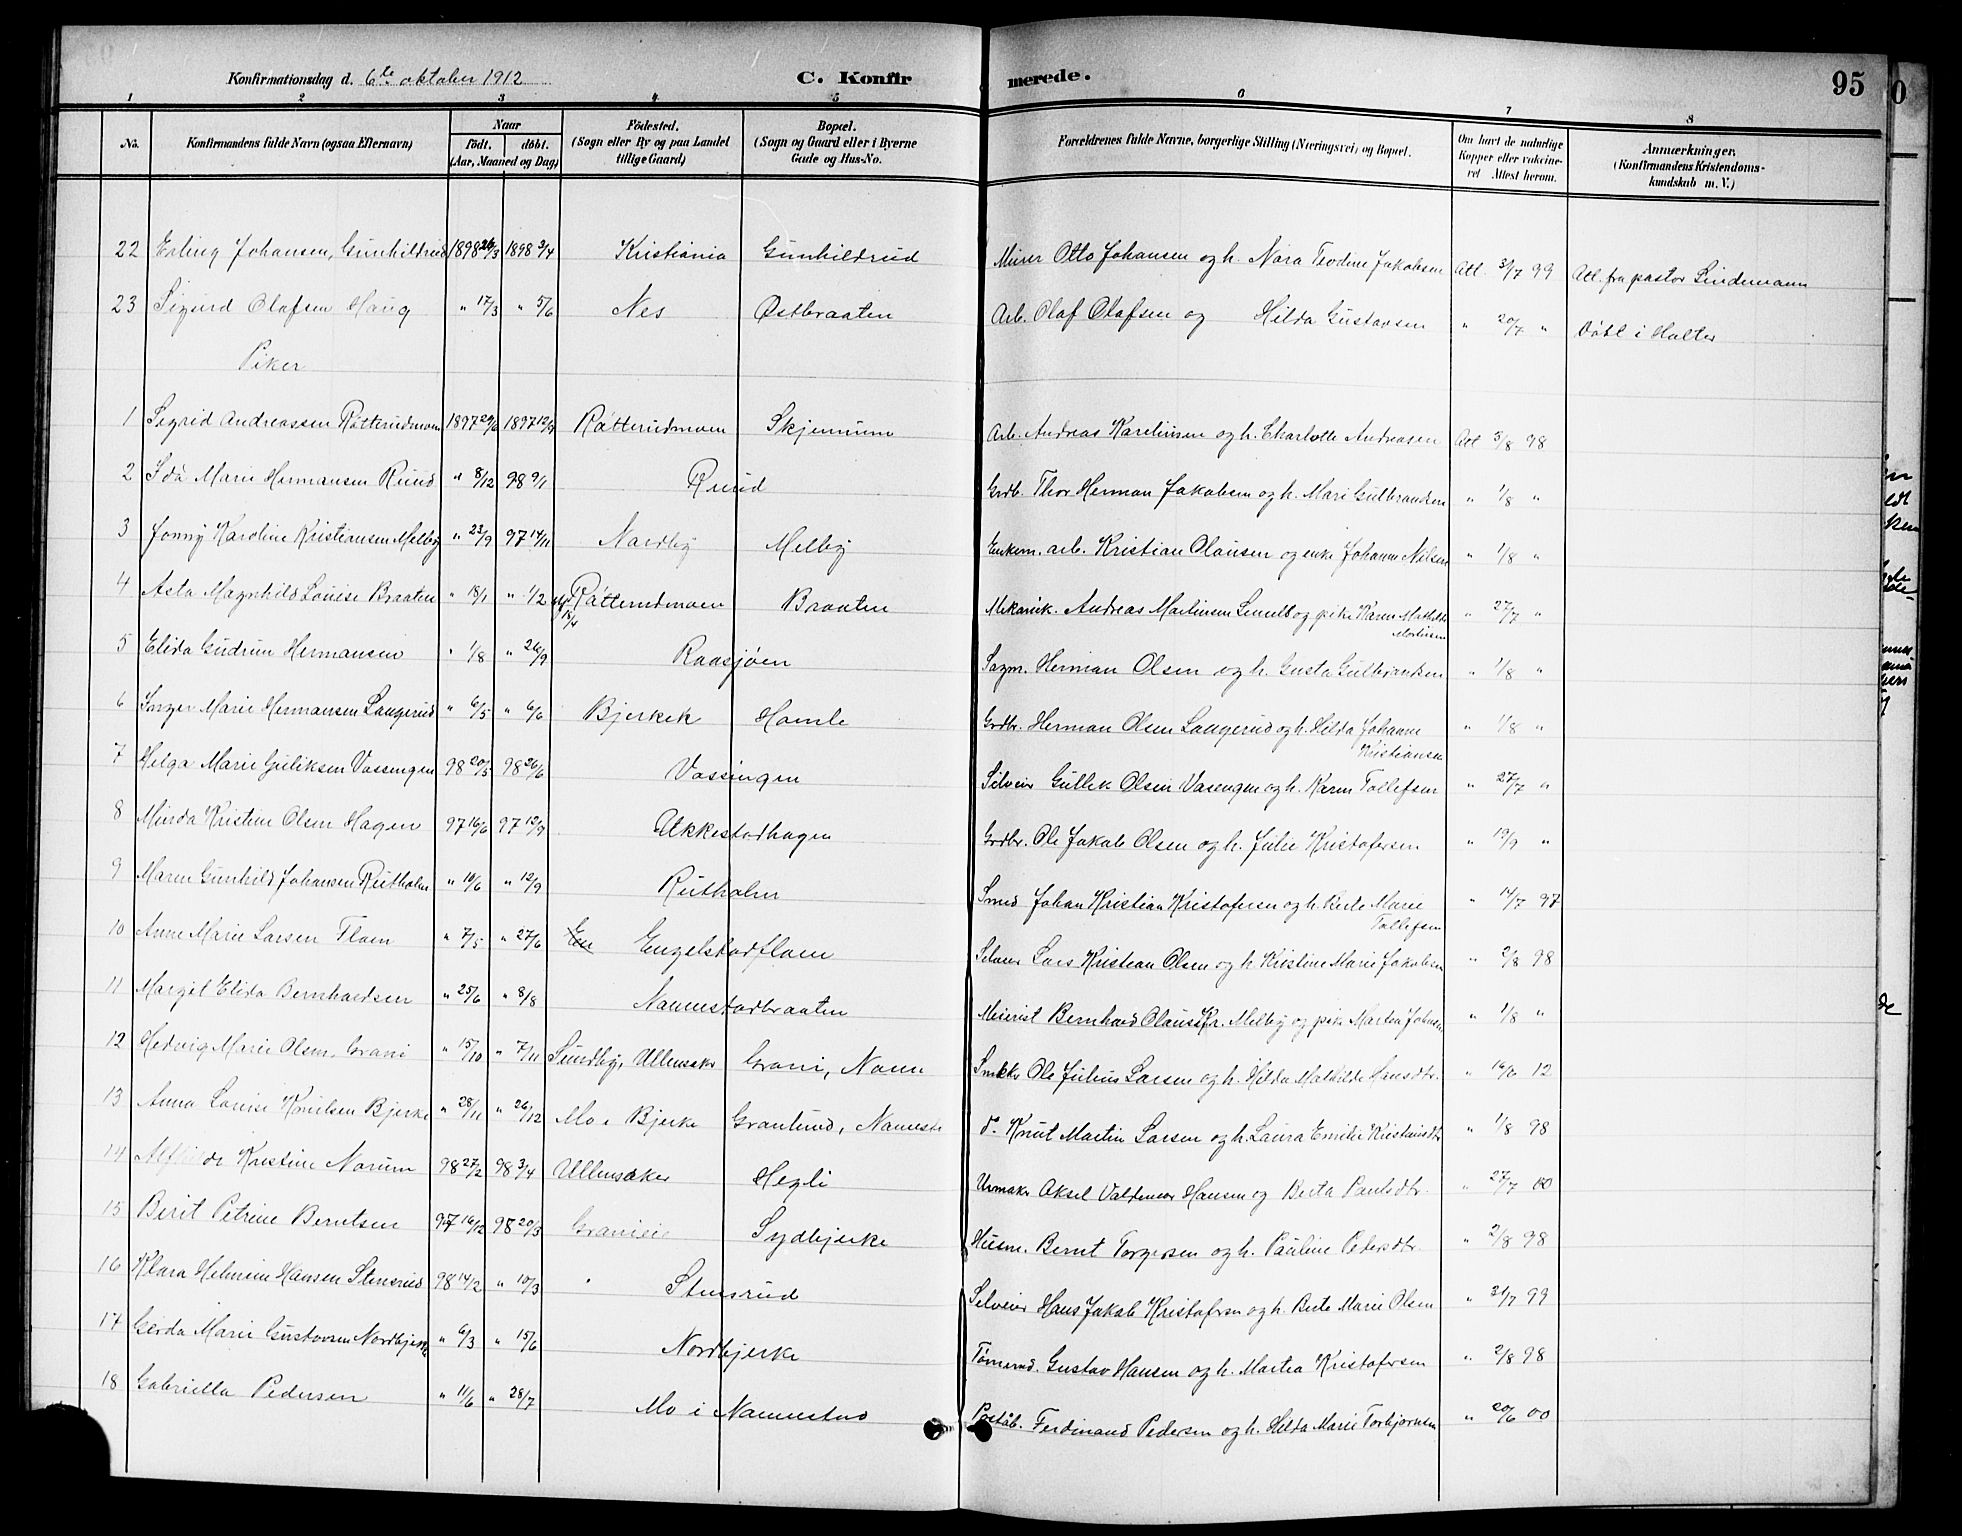 Konfirmationsdag d. 6te oktober 1912 C. Konfirmerede. 95
1 2 3 4 5 6 7 8
No. Konfirmandens fulde Navn (ogsaa Efternavn) Naar født. døbt. (Aar, Maaned og Dag) Fødested. (Sogn eller By og paa Landet tillige Gaard) Bopæl. (Sogn og Gaard eller i Byerne Gade og Hus-No. Forældrenes fulde Navne, borgerlige Stilling (Næringsvei) og Bopæl. Om havt de naturlige Kopper eller vakcineret Attest herom. Anmærkninger. (Konfirmandens Kristendomskundskab m. V.)
22 Erling Johansen, Gunhildrud 1898 26/3 1898 3/4 Kristiania Gunhildrud Murer Otto Johansen og h. Nora Teodine Jakobsen Att. 3/7 99 Att. fra pastor Lindemann
23 Sigurd Olafsen Haug " 17/3 " 5/6 Nes Østbraaten Arb. Olaf Olafsen og Hilda Gustavsen " 20/7 " Døbt i Holter
Piker
1 Sigrid Andreassen Råtterudmoen 1897 20/6 1897 12/9 Råtterudmoen Skjennum Arb. Andreas Karelinsen og h. Charlotte Andreasen Att 5/8 98
2 Ida Marie Hermansen Ruud " 8/12 98 9/1 Ruud Grdb. Thor Herman Jakobsen og h. Mari Gulbrandsen " 1/8 "
3 Jonny Karoline Kristiansen Melby " 23/9 97 14/11 Nordby Melby Enkem. arb. Kristian Olausen og enke Johanne Nilsen " 1/8 "
4 Asta Magnhild Louise Braaten " 18/1 " 1/2 Råtterudmoen Braaten Mekanik. Andreas Martinsen og pike Karen Mathilde Mortinsen " 27/7 "
5 Elida Gudrun Hermansen " 1/8 " 26/9 Raasjøen Sagm. Herman Olsen og h. Gusta Gulbrandsen " 1/8 "
6 Inger Marie Hermansen Laugerud " 6/5 " 6/6 Bjerkek Homle Grdbr. Herman Olsen Laugerud og h. Hilda Johanne Kristiansen " 1/8 "
7 Helga Marie Guliksen Vassengen 98 20/5 98 26/6 Vassingen Selveier Gullik Olsen Vasengen og h. Karen Tollefsen " 27/7 "
8 Minda Kristine Olsen Hagen 97 16/6 97 12/9 Ukkestadhagen Grdbr. Ole Jakob Olsen og h. Julie Kristofersen " 19/9 "
9 Maren Gunhild Johansen Rutholm " 10/6 " 12/9 Rutholm Smed Johan Kristian Kristofersen og h. Berte Marie Tollefsen " 14/7 97
10 Anne Marie Larsen Flom " 7/5 " 27/6 Engelstadflom Selveier Lars Kristian Olsen og h. Kristine Marie Jakobsen " 2/8 98
11 Margit Elida Bernhardsen " 25/6 " 8/8 Nannestadbraaten Meierist Bernhard Clauss Fr. Melby og pike Martea Johnsen " 1/8 "
12 Hedvig Marie Olsen, Grani " 15/10 " 7/11 Sundby, Ullensaker Grani, Nann Snekker Ole Julius Larsen og h. Hilda Mathilde Hansdtr. " 16/6 12
13 Anna Louise Knutsen Bjerke " 28/11 " 26/12 Mo i Bjerke Granlund, Nannest d. Knut Martin Larsen og h. Laura Emilie Kristiansdtr " 1/8 98
14 Alfhilde Kristine Norum 98 27/2 98 3/4 Ullensaker Hegli Urmaker Aksel Valdemar Hansen og Berta Paulsdtr. " 27/7 00
15 Berit Petrine Berntsen 97 16/12 98 20/3 Granieie Sydbjerke Husm. Bernt Torgersen og h. Pauline Pedersdtr. " 2/8 98
16 Klara Helmine Hansen Stensrud 98 14/2 " 10/3 " Stensrud Selveier Hans Jakob Kristofersen og h. Berte Marie Olsen " 21/7 99
17 Gerda Marie Gustavsen Nordbjerke " 6/3 " 15/6 Nordbjerke Tømmermd. Gustav Hansen og h. Martea Kristofersen " 2/8 98
18 Gabriella Pedersen " 11/6 " 28/7 Mo i Nannestad Poståb. Ferdinand Pedersen og h. Hilda Marie Torbjørnsen " 20/6 00